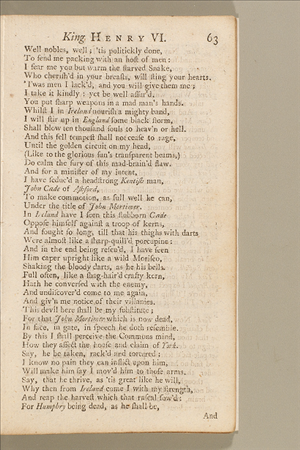 King HENRY VI. 63
Well nobles, well; 'tis politickly done,
To send me packing with an host of men:
I fear me you but warm the starved Snake,
Who cherish'd in your breasts, will sting your hearts.
'Twas men I lack'd, and you will give them me;
I take it kindly: yet be well assur'd,
You put sharp weapons in a mad man's hands.
Whilst I in Ireland nourish a mighty band,
I will stir up in England some black storm,
Shall blow ten thousand souls to heav'n or hell.
And this fell tempest shall not cease to rage,
Until the golden circuit on my head,
(Like to the glorious sun's transparent beams,)
Do calm the fury of this mad-brain'd flaw.
And for a minister of my intent,
I have seduc'd a headstrong Kentish man,
John Cade of Ashford,
To make commotion, as full well he can,
Under the title of John Mortimer.
In Ireland have I seen this stubborn Cade
Oppose himself against a troop of kerns,
And fought so long, till that his thighs with darts
Were almost like a sharp-quill'd porcupine:
And in the end being rescu'd, I have seen
Him caper upright like a wild Morisco,
Shaking the bloody darts, as he his bells.
Full often, like a shag-hair'd crafty kern,
Hath he conversed with the enemy,
And undiscover'd come to me again,
And giv'n me notice of their villanies.
This devil here shall be my substitute;
For that John Mortimer which is now dead,
In face, in gate, in speech he doth resemble.
By this I shall perceive the Commons mind,
How they affect the house and claim of York.
Say, he be taken, rack'd and tortured;
I know no pain they can inflict upon him,
Will make him say I mov'd him to those arms.
Say, that he thrive, as 'tis great like he will,
Why then from Ireland come I with my strength,
And reap the harvest which that rascal sow'd:
For Humphry being dead, as he shall be,
And